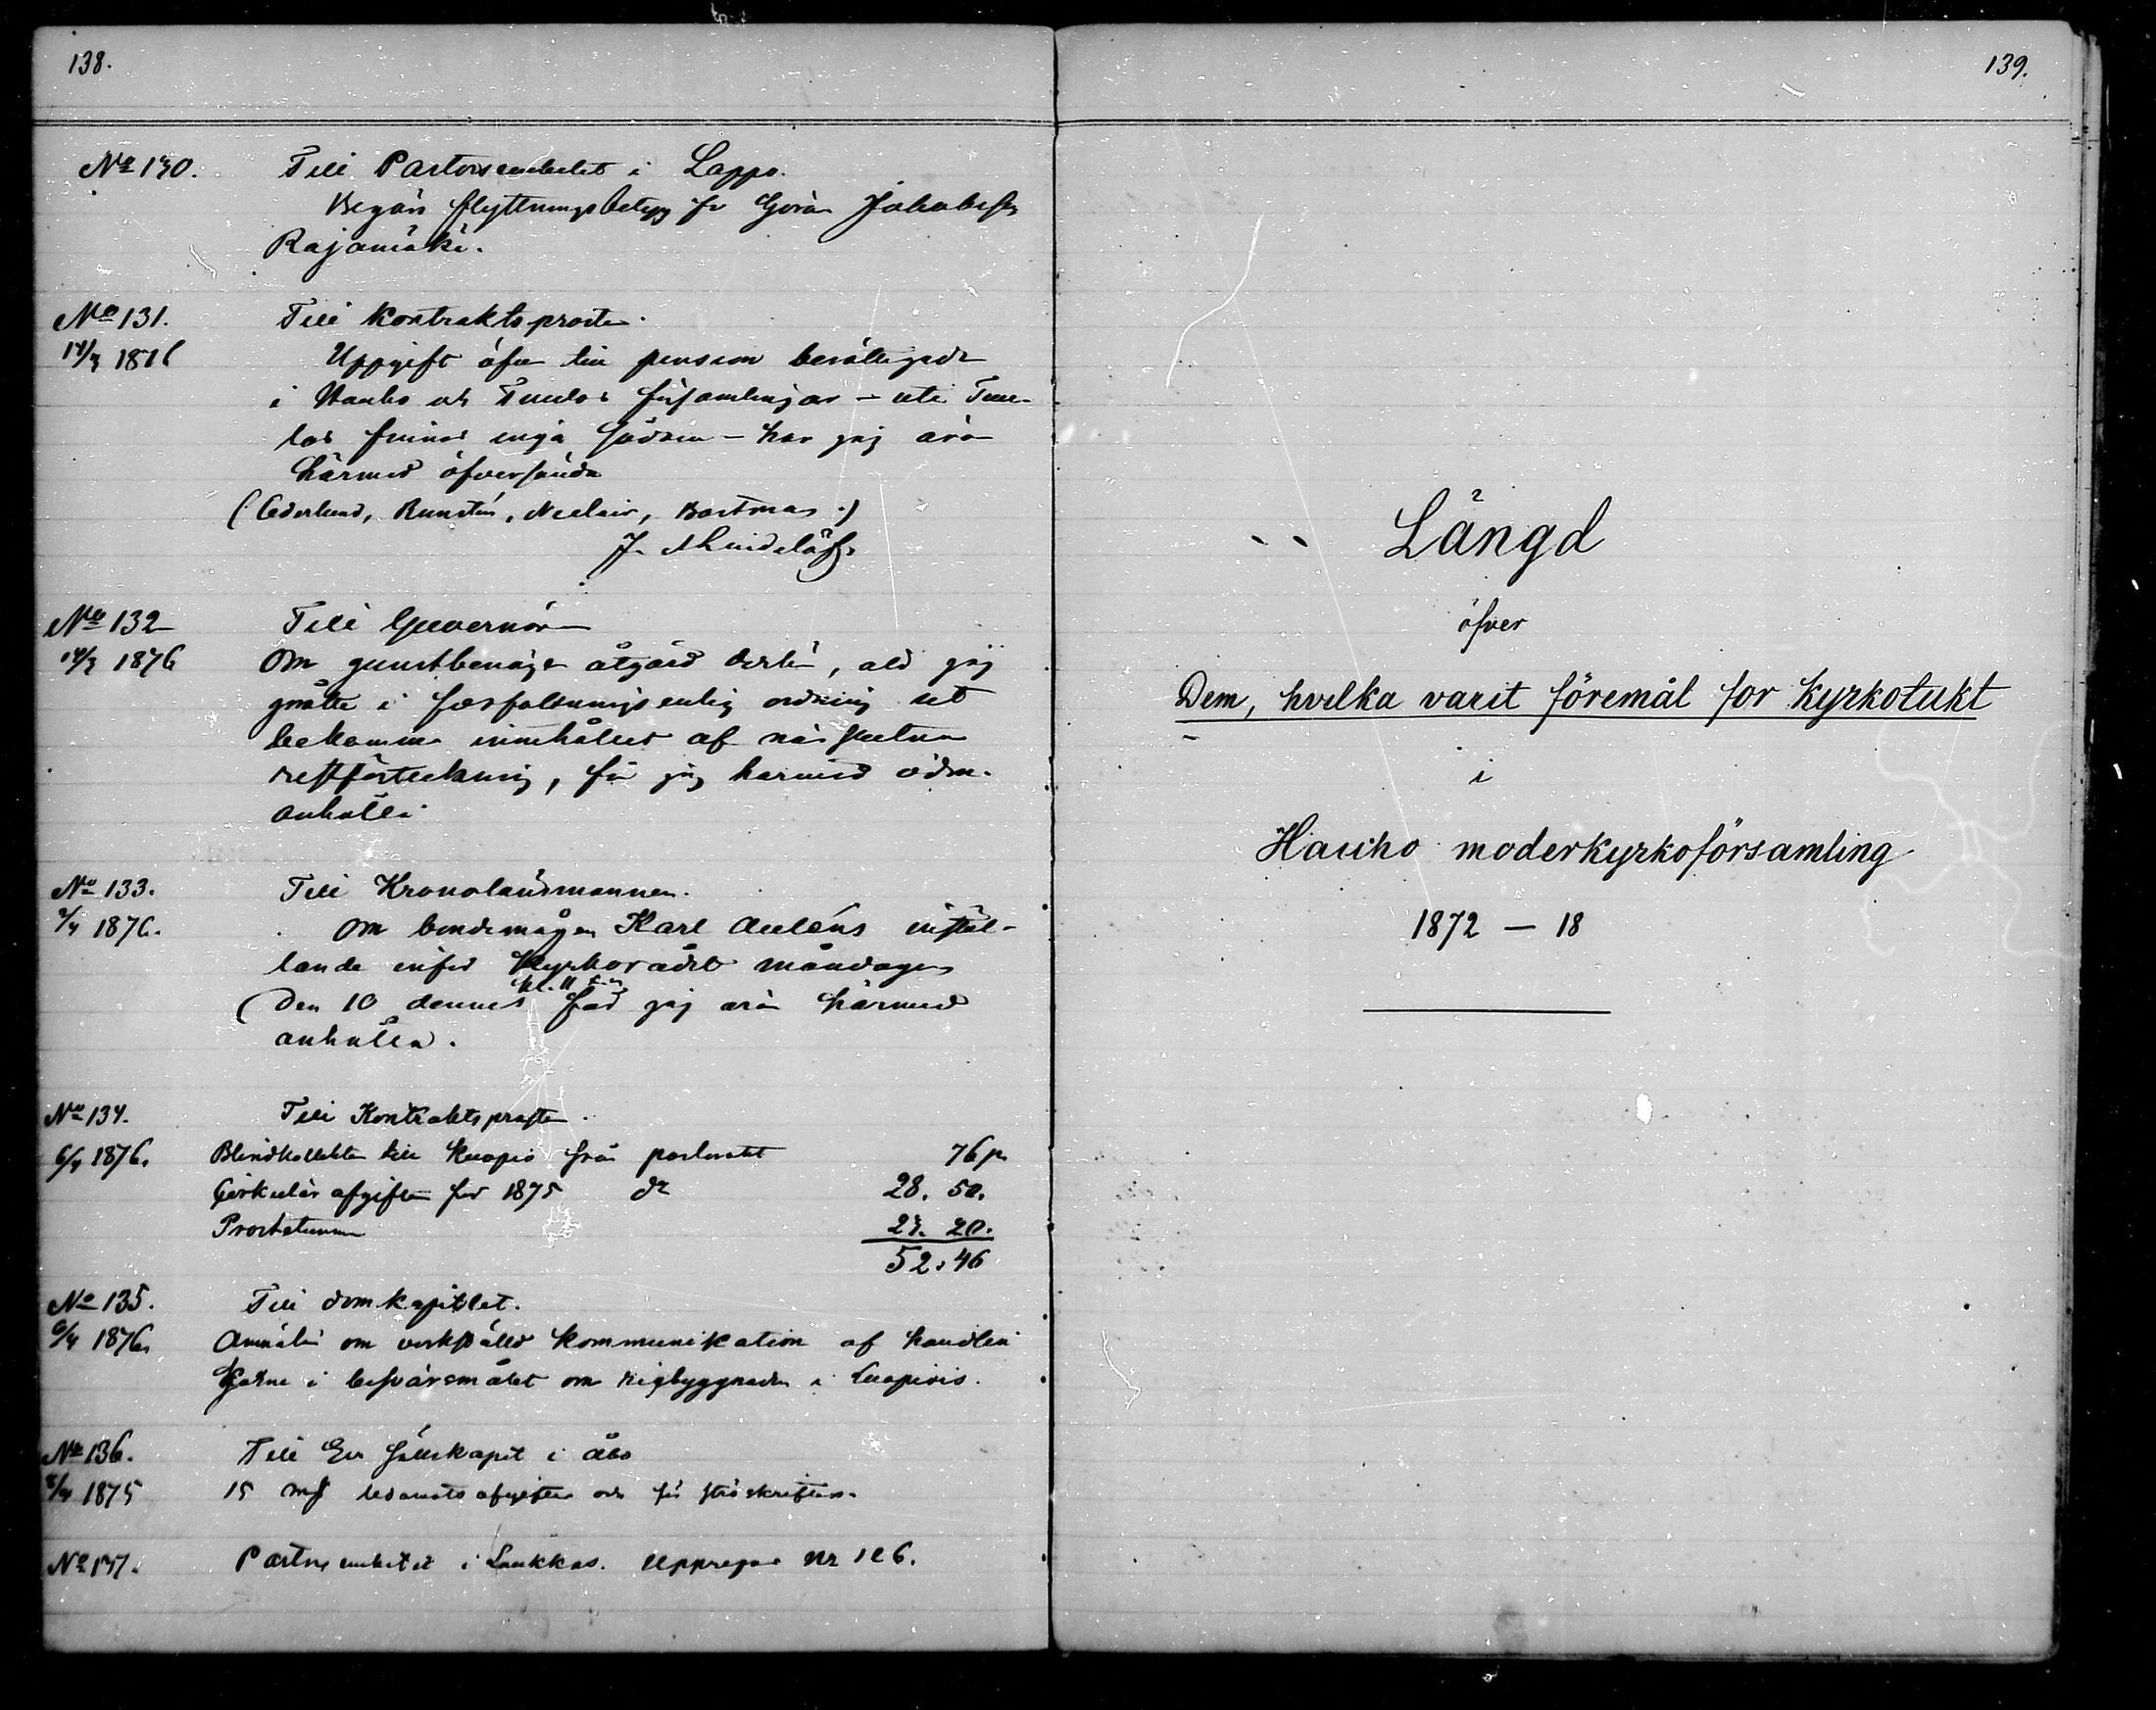 138.
No 130.
Till Pastorsembetet i Lappo.
Begärs flyttningsbetyg för Göran Jakobsson
Rajamäki.
No 131.
Till Kontraktsprosten.
14/3 1876
Uppgift öfver till pension berättigade
i Hauho och Tuulos församlingar – uti Tuu-
los finnas inga sådana – har jag äran
härmed öfversända
(Cederlund, Runstén, Bastman.)
J. A Lindelöf
No 132
Till Guvernören
14/3 1876
Om gunstbenägen åtgärd dertill, att jag
måtte i författningsenlig ordning
bekomma innehållet af närslutna
restförteckning, får jag härmed ödm.
anhålla
No 133.
Till Kronolänsmannen.
2/4 1876.
Om bondemågen Karl Auléns instäl-
lande inför Kyrkorådet måndagen
kl. 11
(den 10 dennes får jag äran härmed
anhålla.
No 134.
Till Kontraktsprosten.
6/4 1876.
Blindkollekten till Kuopio från pastoratet 76 p.
Cirkulär afgiften för 1875 do 28. 50.
Prosttunnan 23. 20.
52. 46
No 135.
Till domkapitlet.
6/4 1876.
Anmälan om verkstäld kommunikation af handlin
garne i besvärsmålet om nybyggnaden i Luopiois.
No 136.
Till Ev Sällskapet i Åbo
1875
15 mk ledamots afgifter och för ströskrifter.
No 137.
Pastorsembetet i Laukkas. Upprepas nr 126.
139.
Längd
öfver
Dem, hvilka varit föremål for kyrkotukt
i
Hauho moderkyrkoförsamling
1872 – 18